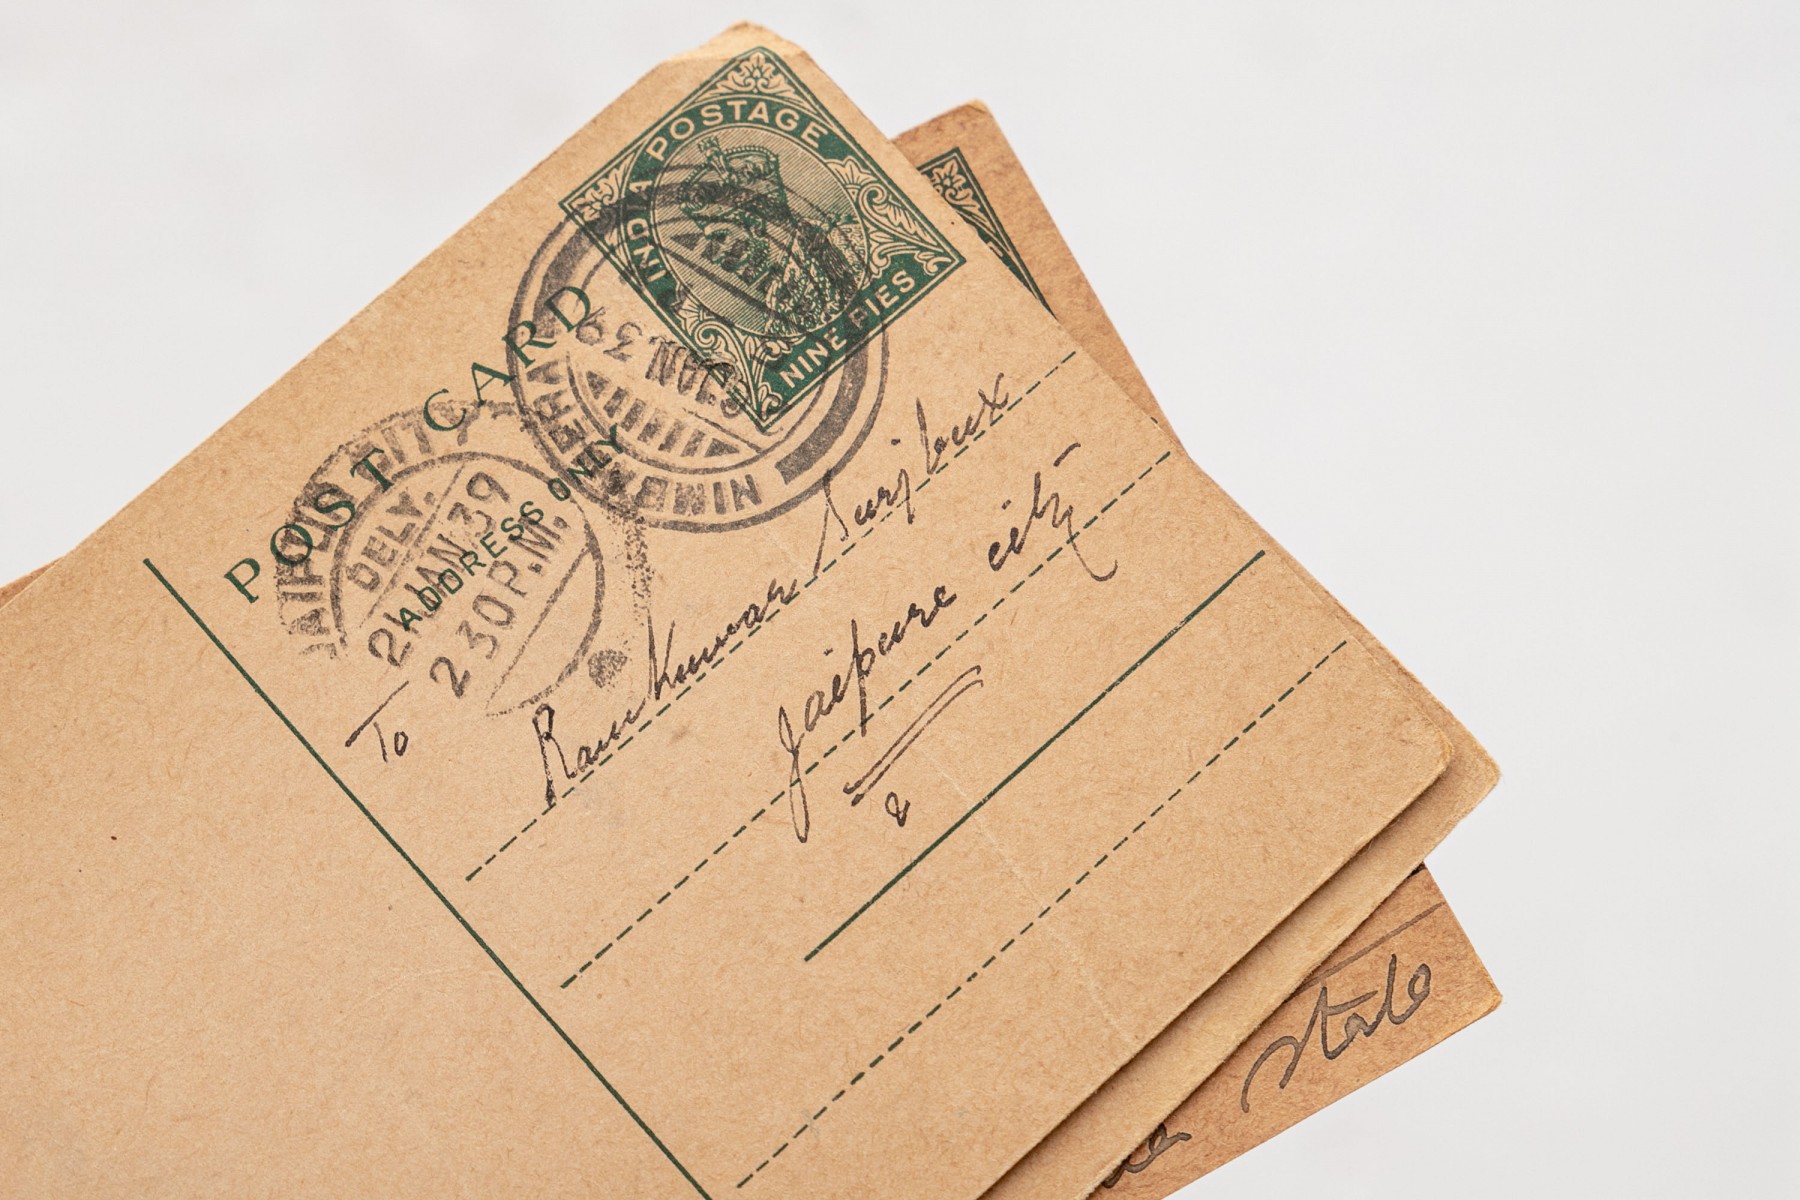 INDIA POSTAGE
NINE PIES
POST CARD
ADDRESS ONLY
JAIPUR CITY
DELY.
21 JAN. 39
2 30 P.M.
JAN. 39
To
Ram Kumar Surjbux
Jaipure city
State